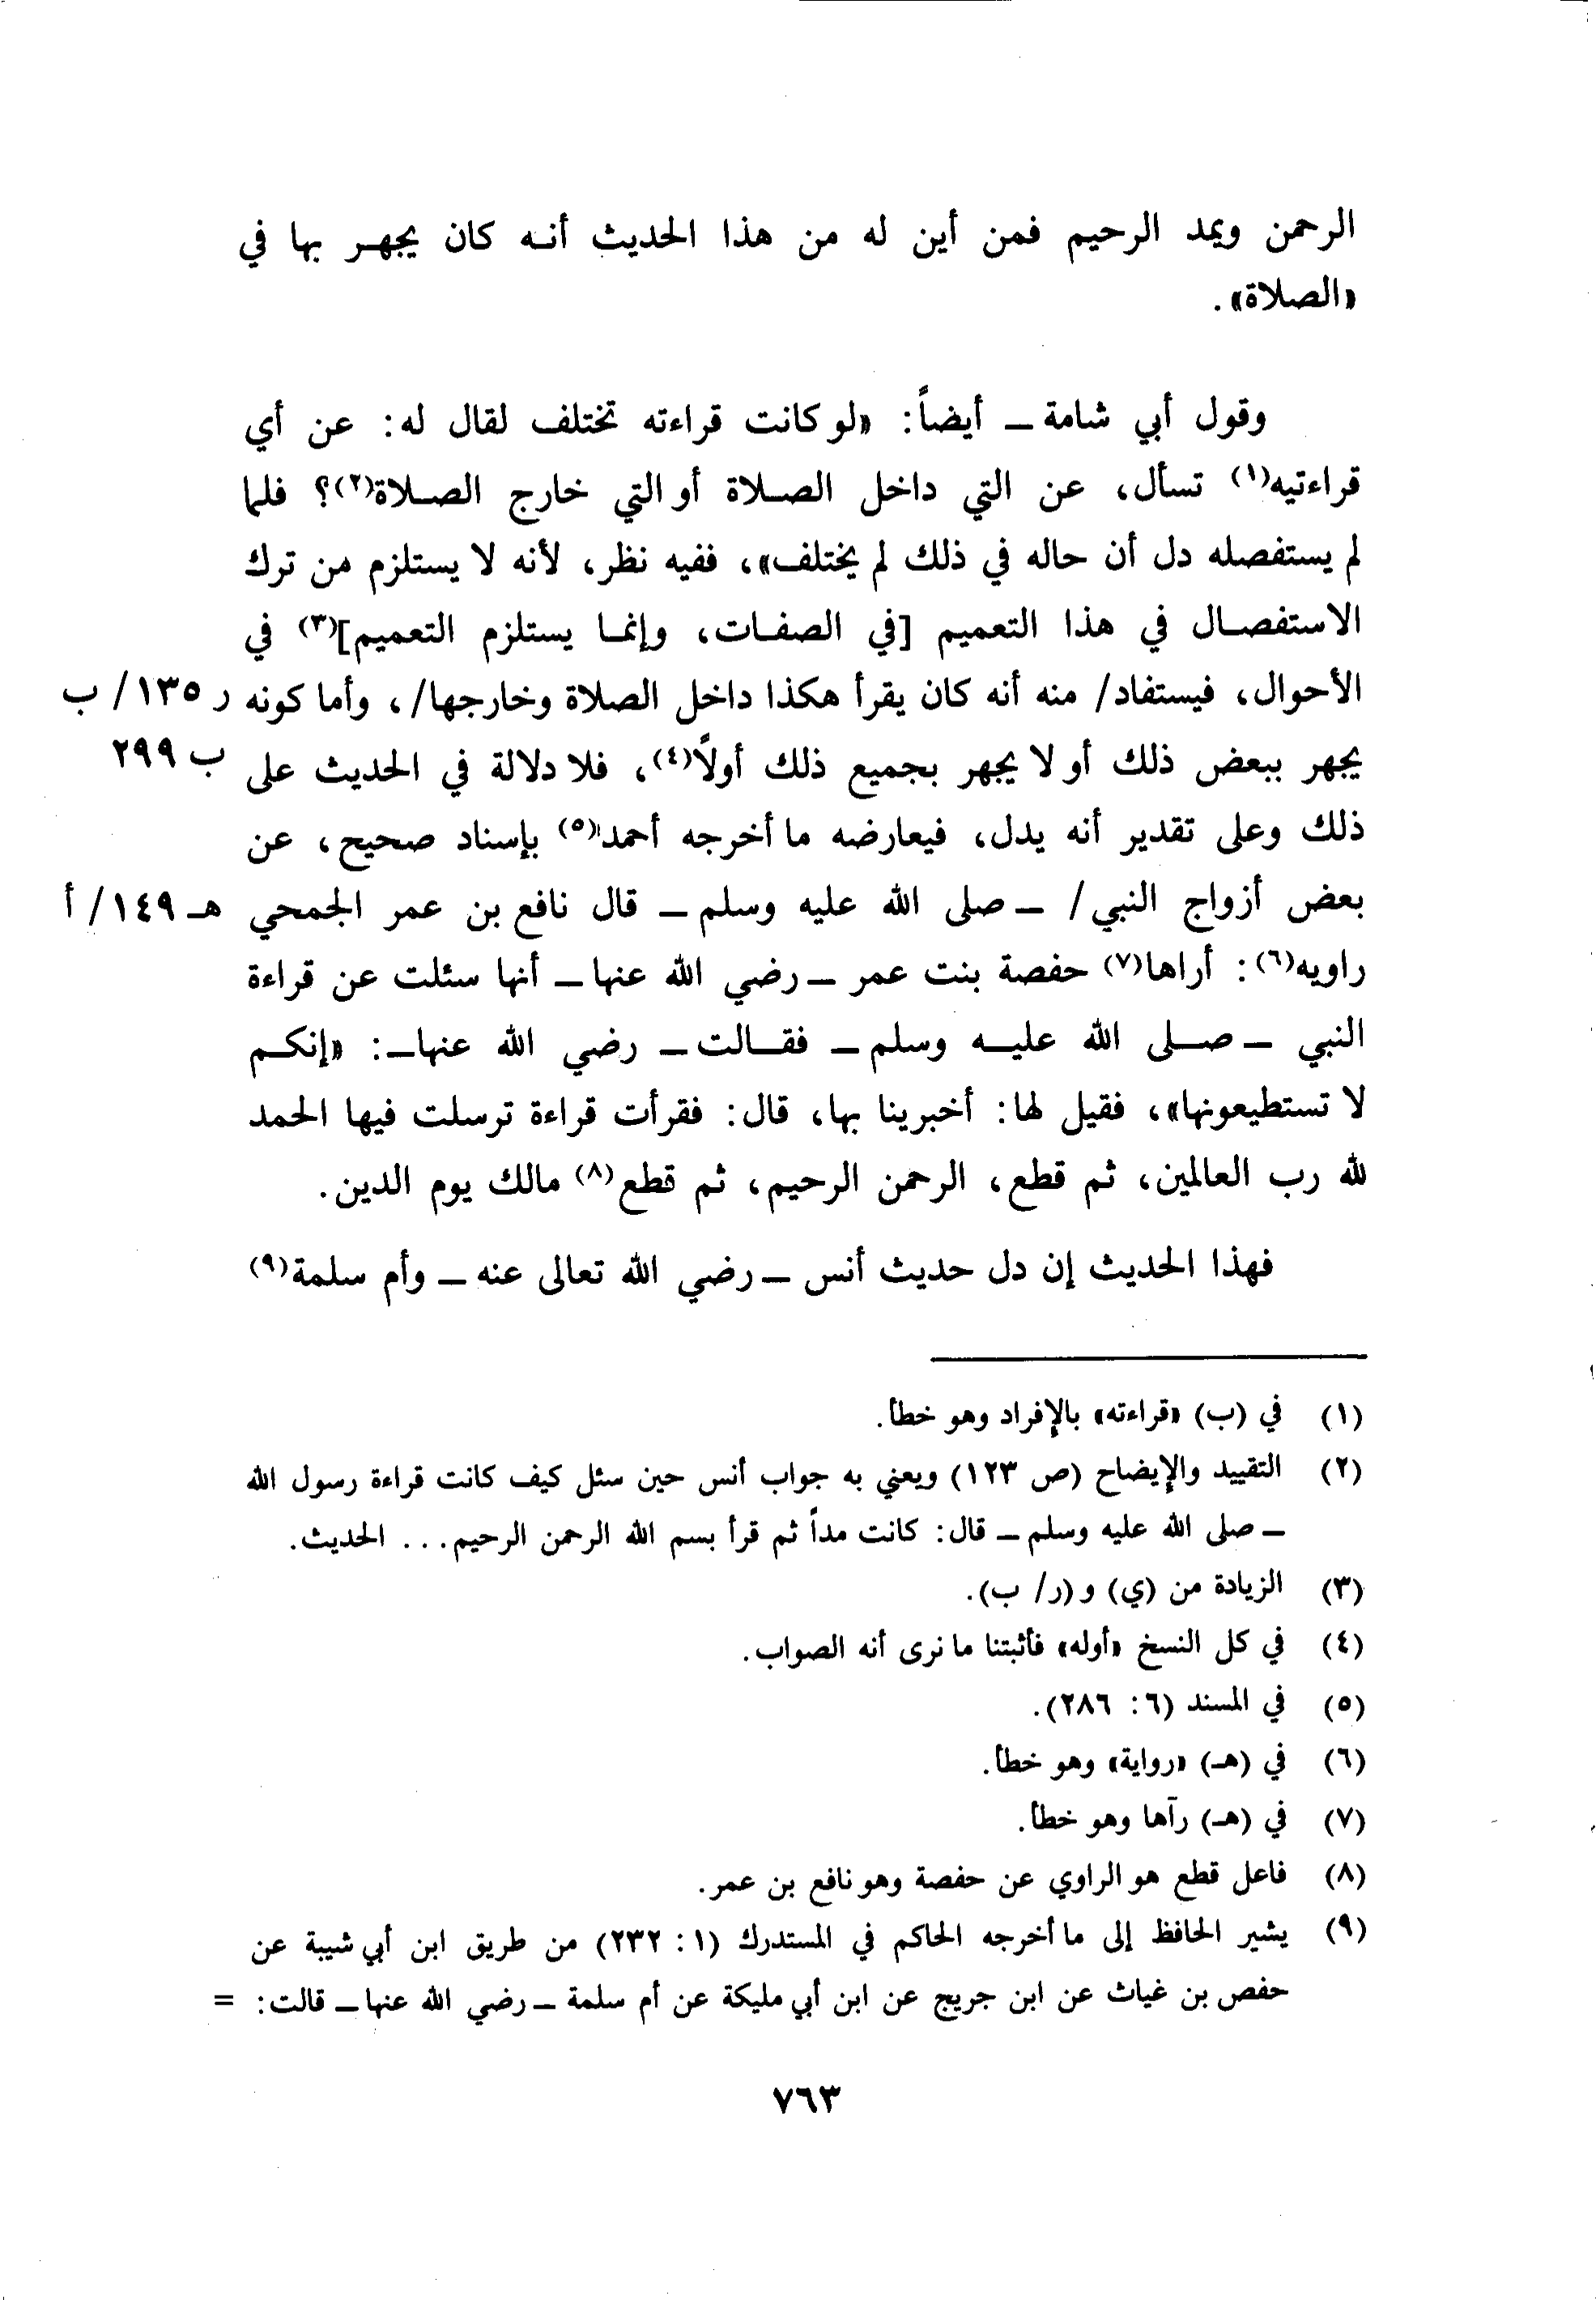 الرحمن ويمد الرحيم فمن أين له من هذا الحديث أنه كان يجهر بها في
«الصلاة».
وقول أبي شامة – أيضاً: «لو كانت قراءته تختلف لقال له: عن أي
قراءتيه(١) تسأل، عن التي داخل الصلاة أو التي خارج الصلاة(٢)؟ فلما
لم يستفصله دل أن حاله في ذلك لم يختلف»، ففيه نظر، لأنه لا يستلزم من ترك
الاستفصال في هذا التعميم [في الصفات، وإنما يستلزم التعميم](٣) في
الأحوال، فيستفاد/ منه أنه كان يقرأ هكذا داخل الصلاة وخارجها/، وأما كونه ر ١٣٥/ ب
يجهر ببعض ذلك أو لا يجهر بجميع ذلك أولاً(٤)، فلا دلالة في الحديث على ب ٢٩٩
ذلك وعلى تقدير أنه يدل، فيعارضه ما أخرجه أحمد(٥) بإسناد صحيح، عن
بعض أزواج النبي/ – صلى الله عليه وسلم – قال نافع بن عمر الجمحي هـ ١٤٩/ أ
راويه(٦): أراها(٧) حفصة بنت عمر – رضي الله عنها – أنها سئلت عن قراءة
النبي – صلى الله عليه وسلم – فقالت – رضي الله عنها –: «إنكم
لا تستطيعونها»، فقيل لها: أخبرينا بها، قال: فقرأت قراءة ترسلت فيها الحمد
لله رب العالمين، ثم قطع، الرحمن الرحيم، ثم قطع(٨) مالك يوم الدين.
فهذا الحديث إن دل حديث أنس – رضي الله تعالى عنه – وأم سلمة(٩)
(١) في (ب) «قراءته» بالإفراد وهو خطأ.
(٢) التقييد والإيضاح (ص ١٢٣) ويعني به جواب أنس حين سئل كيف كانت قراءة رسول الله
– صلى الله عليه وسلم – قال: كانت مداً ثم قرأ بسم الله الرحمن الرحيم... الحديث.
(٣) الزيادة من (ي) و (ر/ ب).
(٤) في كل النسخ «أوله» فأثبتنا ما نرى أنه الصواب.
(٥) في المسند (٦: ٢٨٦).
(٦) في (هـ) «رواية» وهو خطأ.
(٧) في (هـ) رآها وهو خطأ.
(٨) فاعل قطع هو الراوي عن حفصة وهو نافع بن عمر.
(٩) يشير الحافظ إلى ما أخرجه الحاكم في المستدرك (١: ٢٣٢) من طريق ابن أبي شيبة عن
حفص بن غياث عن ابن جريج عن ابن أبي مليكة عن أم سلمة – رضي الله عنها – قالت: =
٧٦٣